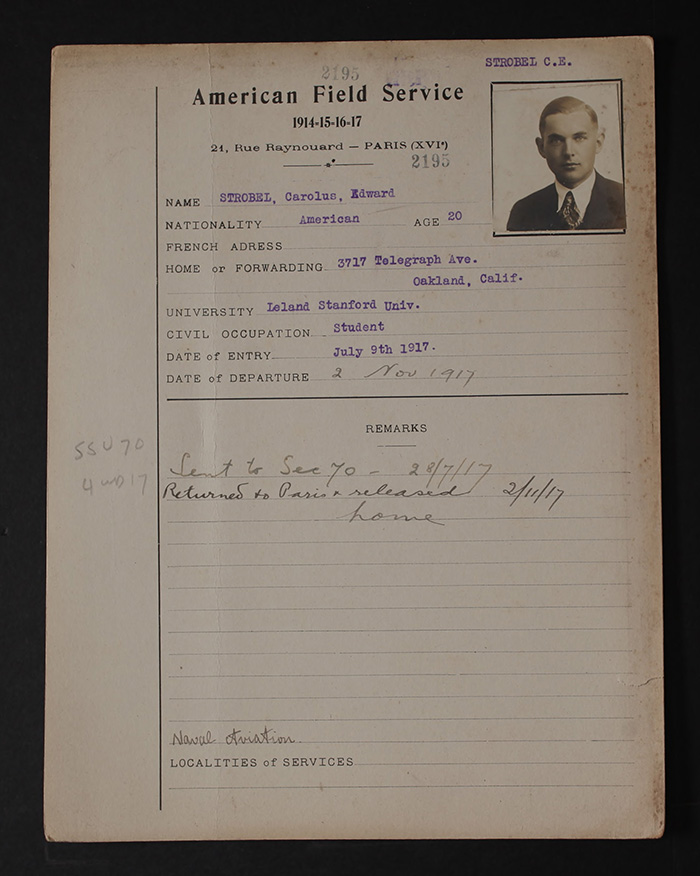 STROBEL C.E.
2195
American Field Service
1914-15-16-17
21, Rue Raynouard — PARIS (XVIe)
2195
NAME STROBEL, Carolus, Edward
NATIONALITY American AGE 20
FRENCH ADRESS
HOME or FORWARDING 3717 Telegraph Ave.
Oakland, Calif.
UNIVERSITY Leland Stanford Univ.
CIVIL OCCUPATION Student
DATE of ENTRY July 9th 1917.
DATE of DEPARTURE 2 Nov 1917
REMARKS
SSU 70
Sent to Sec 70 - 28/7/17
4 17
Returned to Paris & released 2/11/17
home
Naval Aviation
LOCALITIES of SERVICES